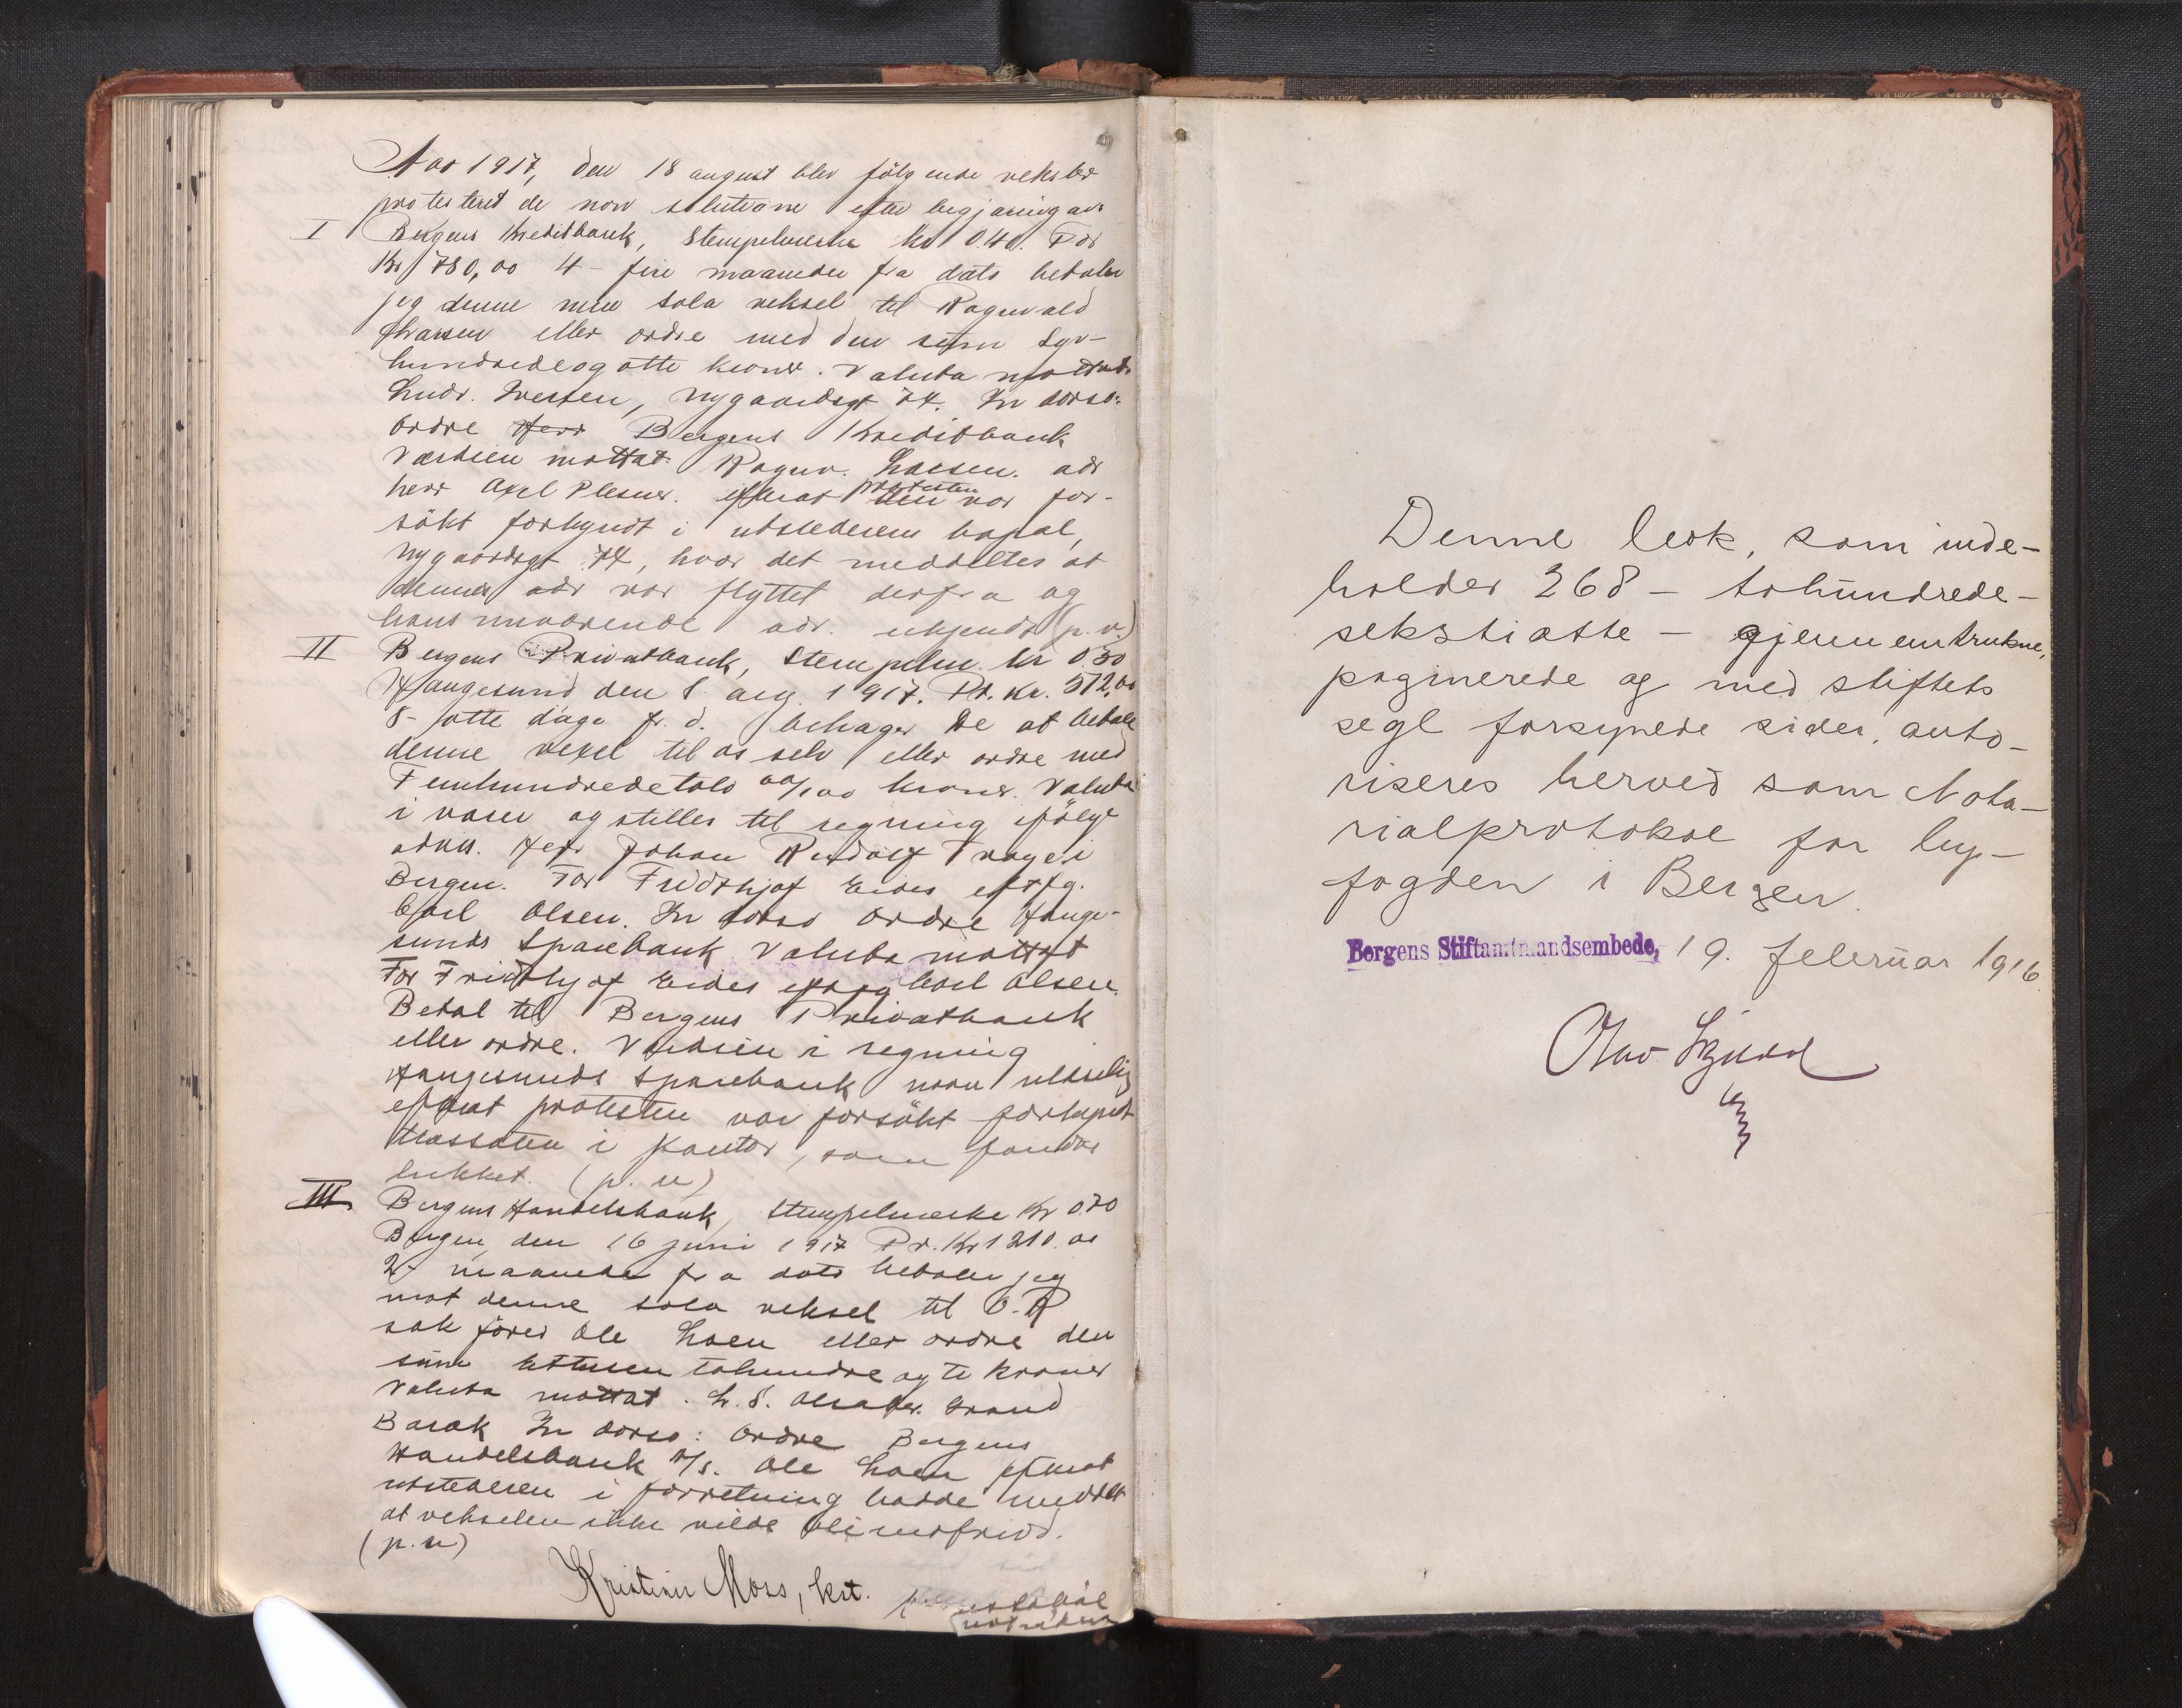 Aar 1917, den 18 august blev følgende veksler
protesteret de non solutione efter begjæring av:
I Bergens Kreditbank, Stempelmerke kr 0.40. For
Kr 780,00 4 - fire maaneder fra dato betaler
jeg denne min sola veksel til Ragnvald
Larsen eller ordre med den sum Syv-
hundredeogotte kroner. Valuta mottat.
Ludv. Iversen, Nygaardsgt 74. In dorso:
Ordre Herr Bergens Kreditbank
Værdien mottat. Ragnv. Larsen. adr
herr Axel Plesner. efterat protesten den var for-
søkt forkyndt i utstederens bopæl,
Nygaardsgt 74, hvor det meddeltes at
denne adr var flyttet derfra og
hans nuværende adr. ukjendt (p. v.)
II Bergens Privatbank, Stempelm. kr 0.30
Haugesund den 8 aug. 1917. Pr. kr. 512,00
8 - otte dage fr. d. behager De at betale
denne vexel til os selv eller ordre med
Femhundredetolv 00/100 kroner. Valuta
i varer og stilles til regning ifølge
advis. Herr Johan Rudolf
Bergen. For Fridthjof Eides eftfg.
Carl Olsen. In dorso Ordre Hauge-
sunds Sparebank Valuta mottat
For Fridthjof Eides eftfg Carl Olsen.
Betal til Bergens Privatbank
eller ordre. Værdien i regning
Haugesunds Sparebank
efterat protesten var forsøkt forkyndt
trassaten i kontor, som fandtes
lukket. (p. u)
III Bergens Handelsbank, Stempelmerke kr 0.70
Bergen, den 16 juni 1917 Pr. Kr 1210.00
2 - maaneder fra dato betaler jeg
mot denne sola veksel til O. R
sakfører Ole Loen eller ordre den
sum ettusen tohundre og ti kroner
Valuta mottat. L. S. Grand
Barak In dorso: Ordre Bergens
Handelsbank A/S. Ole Loen efterat
utstederen i forretning hadde meddelt
at vekselen ikke vilde bli indfridd.
(p. u)
Kristian Moss, kst.
Denne bok, som inde-
holder 268 - tohundrede-
sekstiotte - gjennemtrukne,
paginerede og med stiftets
segl forsynede sider, auto-
riseres herved som Nota-
rialprotokol for by-
fogden i Bergen.
Bergens Stiftamtmandsembede, 19. februar 1916